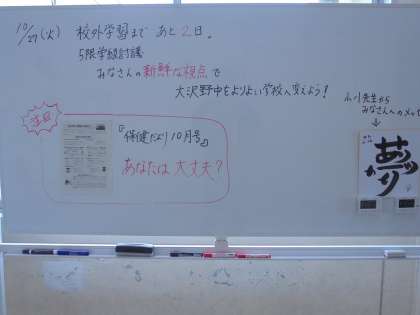 10/27(火) 校外学習まで あと2日。
5限学級討議
みなさんの新鮮な視点で
大沢野中をよりよい学校へ変えよう！
注目
『保健だより10月号』
あなたは大丈夫？
小川先生から
みなさんへのメッセ